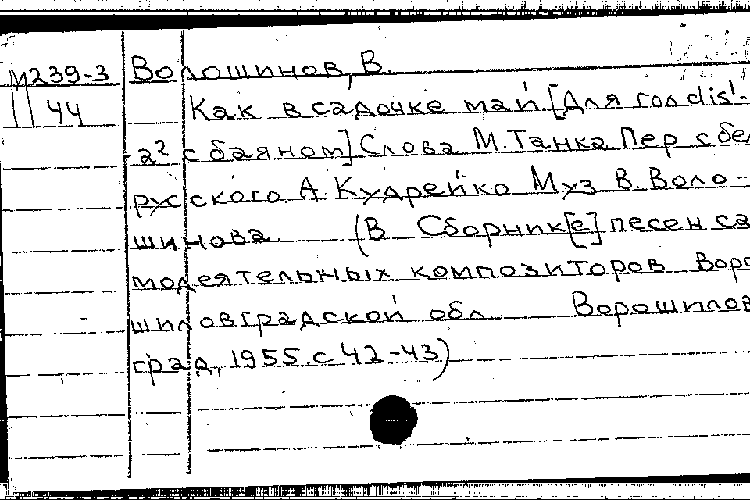 М239-3 Волошинов, В.
44 Как в садочке май [Для гол dis¹-
a² с баяном] Слова М. Танка Пер с бел
русского А. Кудрейко Муз В. Воло-
шинова. (В Сборник[е] песен са
модеятельных композиторов Воро
шиловградской обл Ворошилов
град, 1955. с 42-43)